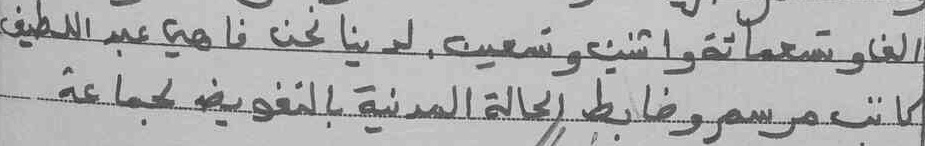 الفا وتسعمائة واثنين وتسعين. لدينا نحن فاهي عبد اللطيف
كاتب مرسم وضابط الحالة المدنية بالتفويض لجماعة